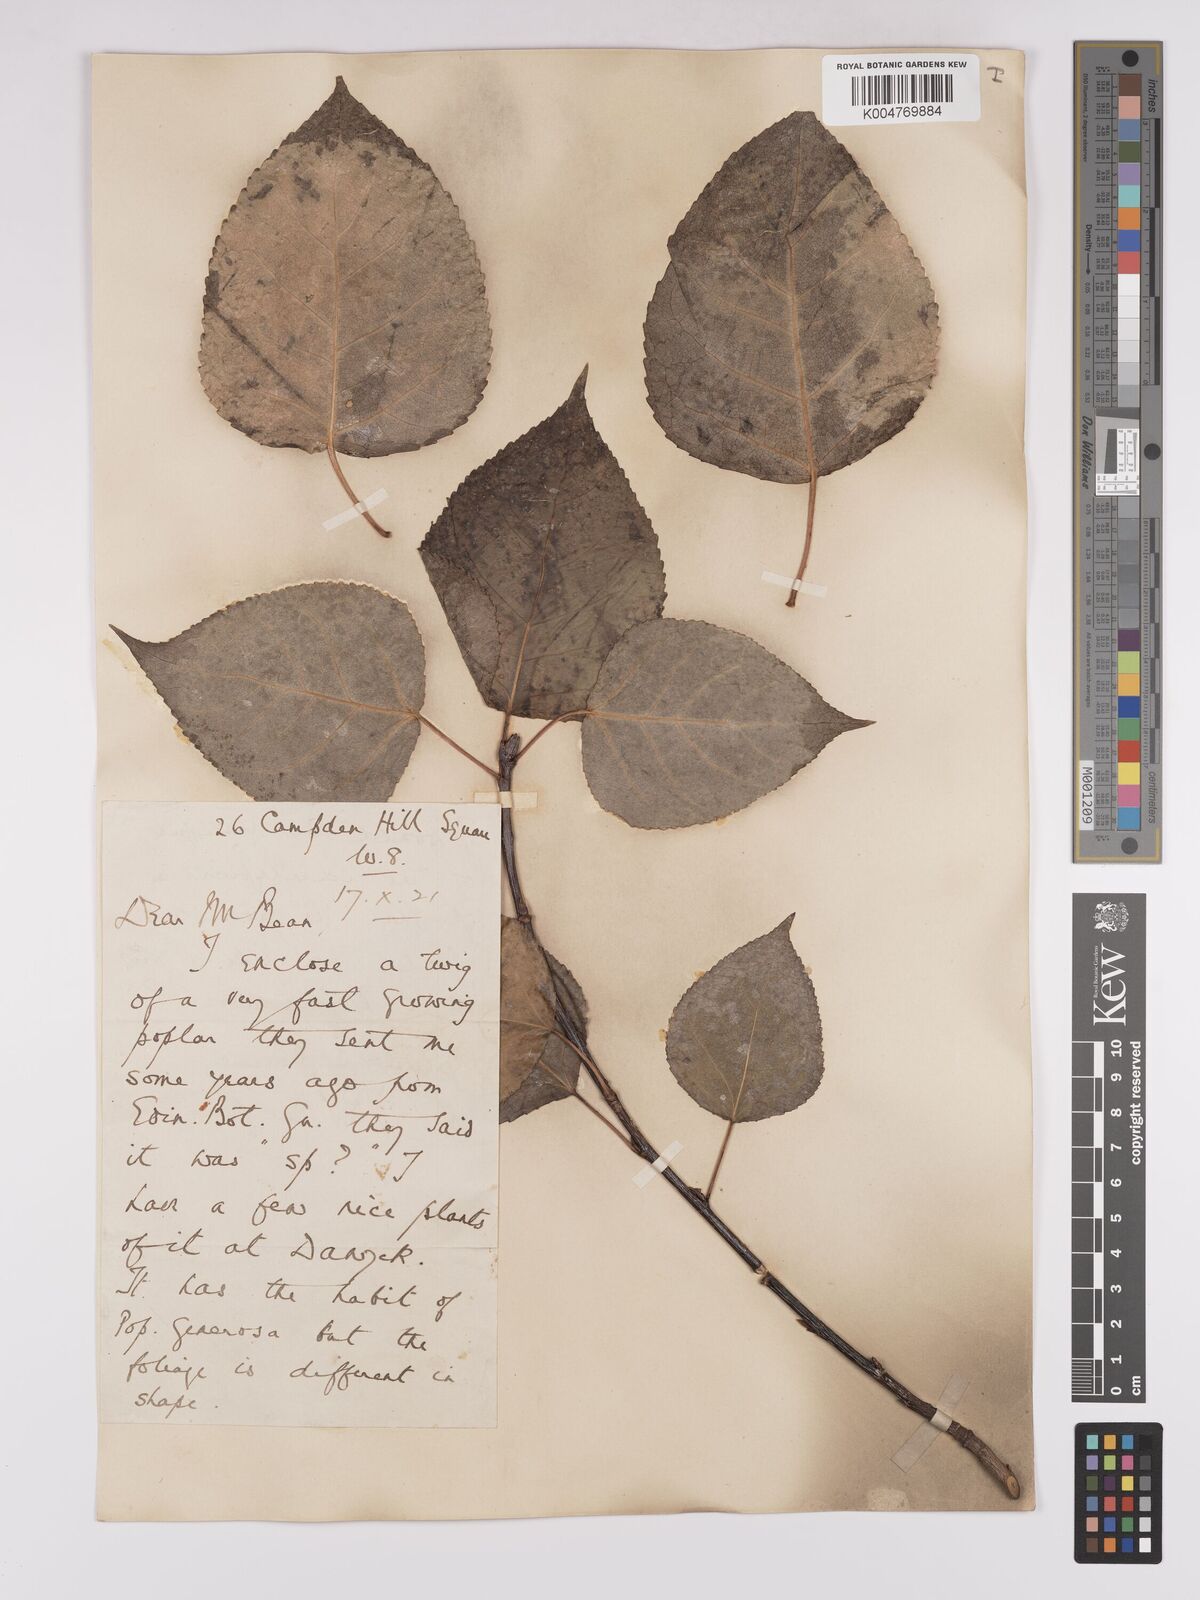 ROYAL BOTANIC GARDENS KEW
K004769884
I
26 Campden Hill Square
W.8.
17.X.21
Dear Mr Bean
I enclose a twig
of a very fast growing
poplar they sent me
some years ago from
Edin. Bot. Gn. they said
it was "sp?" I
have a few nice plants
of it at Dawyck.
It has the habit of
Pop. Generosa but the
foliage is different in
shape.
inches
Density
Don Williams
M001209
centimeters
Royal Botanic Gardens
Kew
copyright reserved
10
9
8
7
6
5
4
3
2
1
0
cm